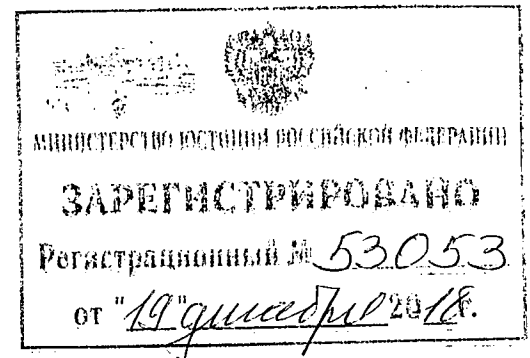 МИНИСТЕРСТВО ЮСТИЦИИ РОССИЙСКОЙ ФЕДЕРАЦИИ
ЗАРЕГИСТРИРОВАНО
Регистрационный № 53053
от "19" декабря 2018г.